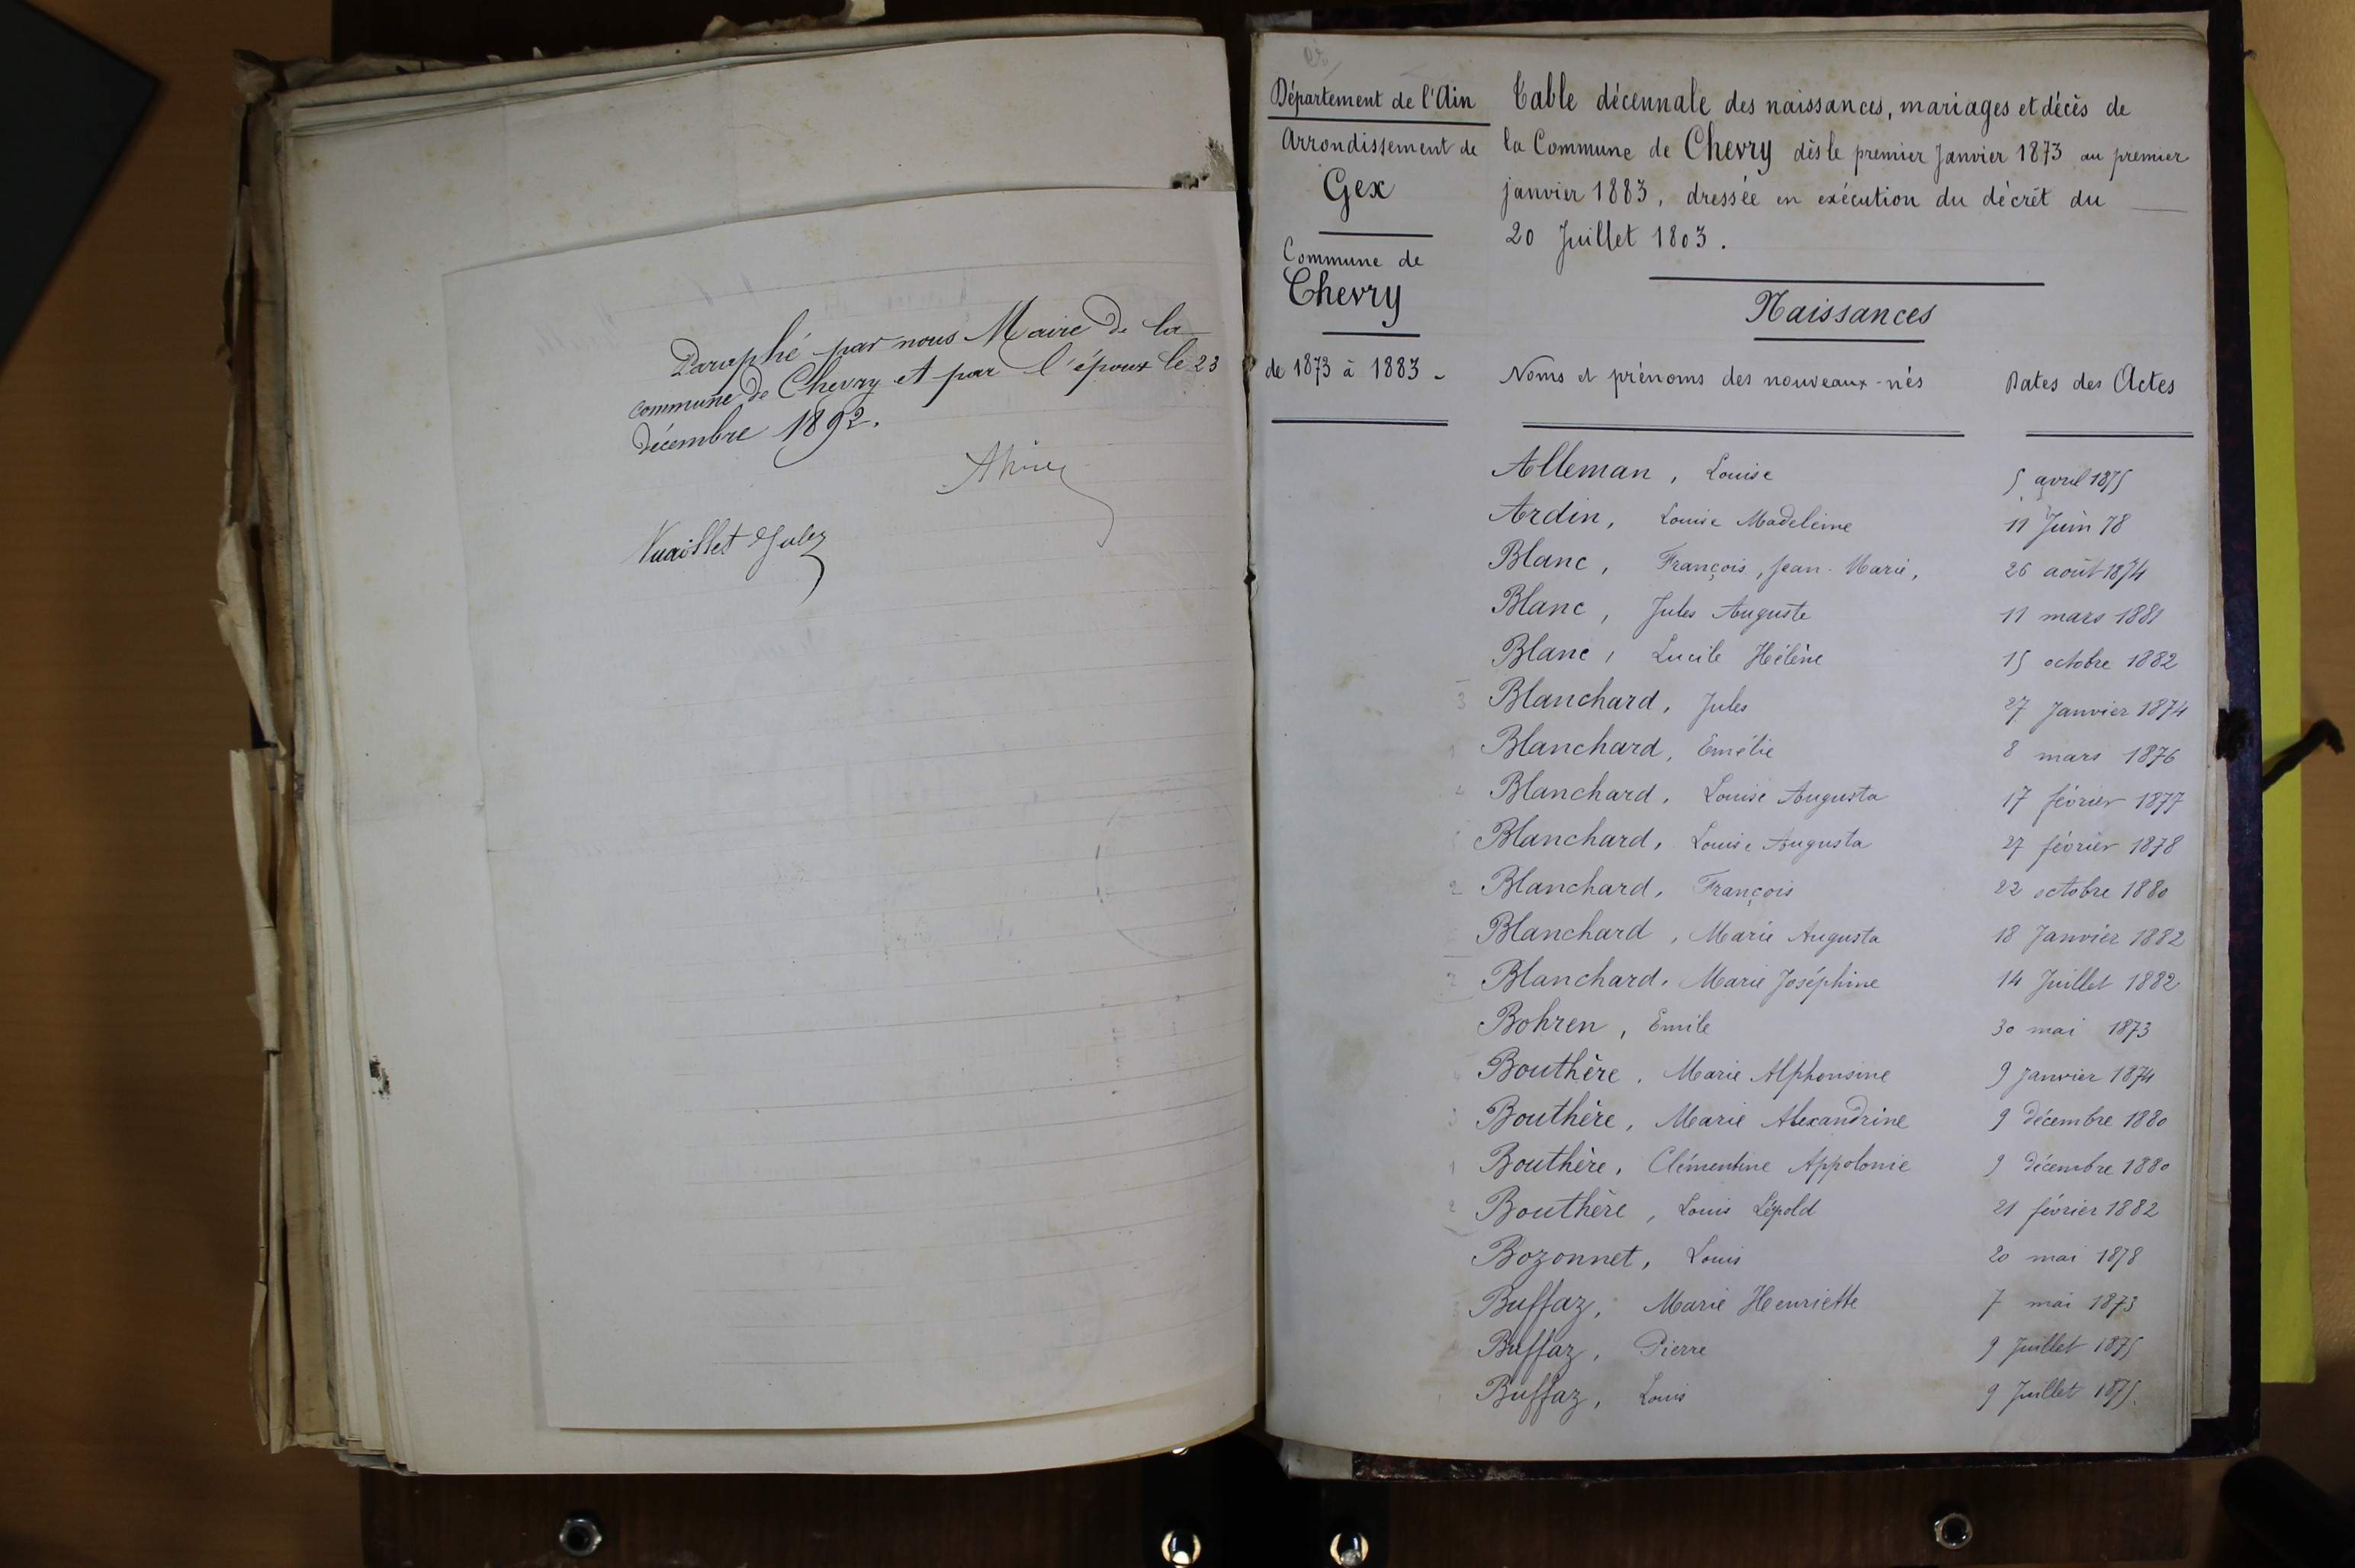 Paraphé par nous Maire de la
commune de Chevry et par l'époux le 23
décembre 1892.
Vuaillet Jules
Département de l'Ain
Arrondissement de
Gex
Commune de
Chevry
de 1873 à 1883.
Table décennale des naissances, mariages et décès de
la Commune de Chevry dès le premier Janvier 1873 au premier
janvier 1883, dressée en exécution du décrêt du
20 Juillet 1803.
Naissances
Noms et prénoms des nouveaux-nés Dates des Actes
Alleman, Louise 5 avril 1875
Ardin, Louise Madeleine 11 Juin 78
Blanc, François, Jean-Marie, 26 août 1874
Blanc, Jules Auguste 11 mars 1881
Blanc, Lucile Hélène 15 octobre 1882
3 Blanchard, Jules 27 Janvier 1874
Blanchard, Emélie 8 mars 1876
4 Blanchard, Louise Augusta 17 février 1877
Blanchard, Louise Augusta 27 février 1878
2 Blanchard, François 22 octobre 1880
Blanchard, Marie Augusta 18 Janvier 1882
7 Blanchard. Marie Joséphine 14 Juillet 1882
Bohren, Emile 30 mai 1873
4 Bouthère, Marie Alphonsine 9 Janvier 1874
3 Bouthère, Marie Alexandrine 9 décembre 1880
1 Bouthère, Clémentine Appolonie 9 décembre 1880
2 Bouthère, Louis Lépold 21 février 1882
Bozonnet, Louis 20 mai 1878
3 Buffaz, Marie Henriette 7 mai 1873
Buffaz, Pierre 9 Juillet 1875
Buffaz, Louis 9 Juillet 1875.